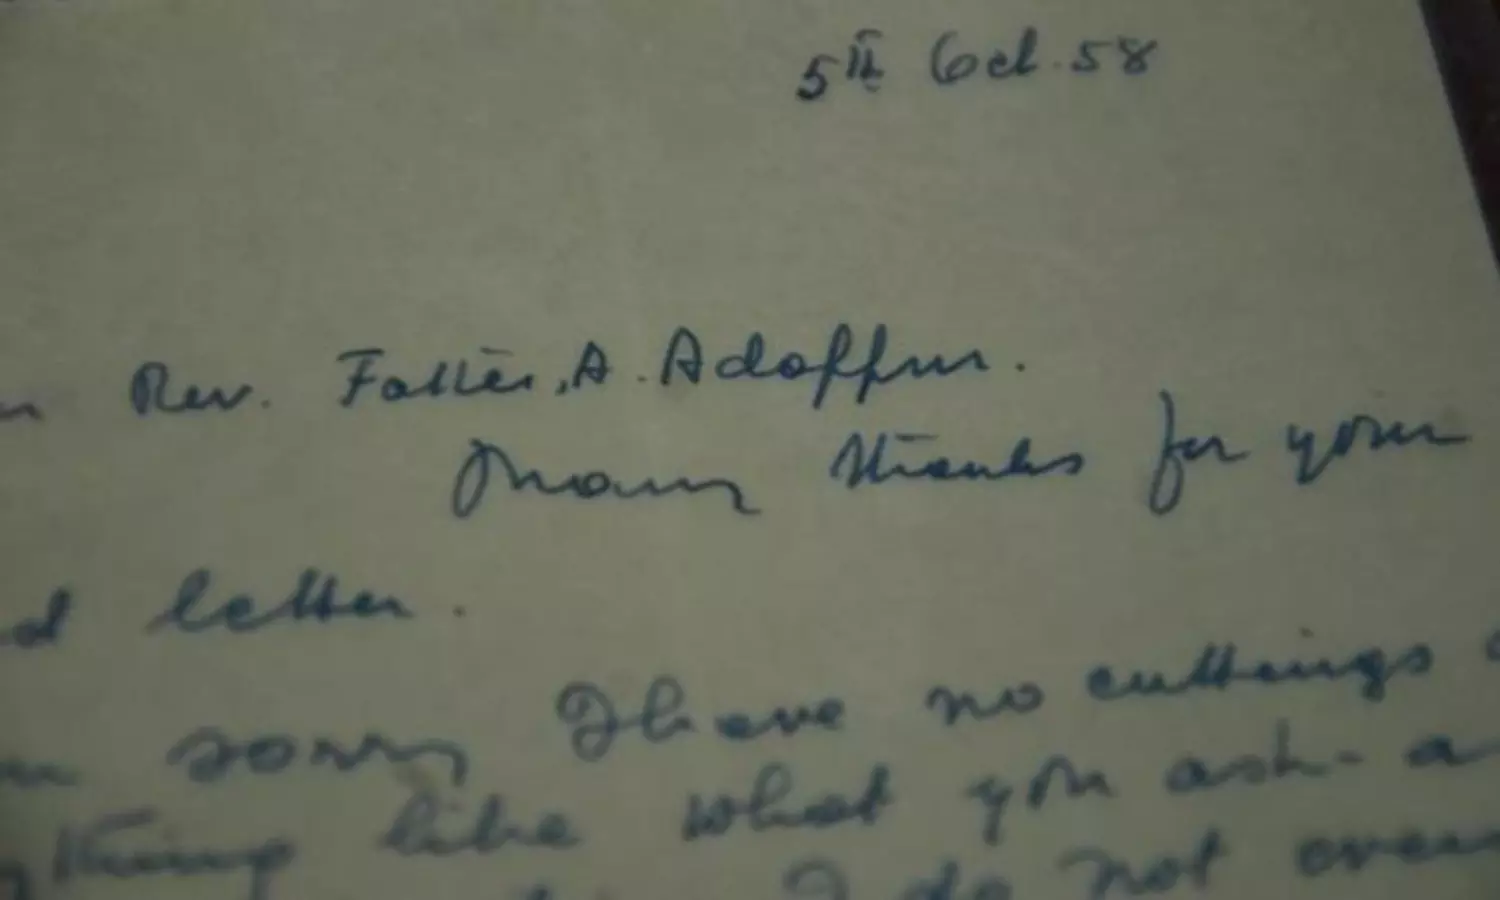 5th Oct. 58
Rev. Father, A. Adoffun.
Many thanks for your
letter.
sorry I have no cuttings
like what you ask - a
I do not even